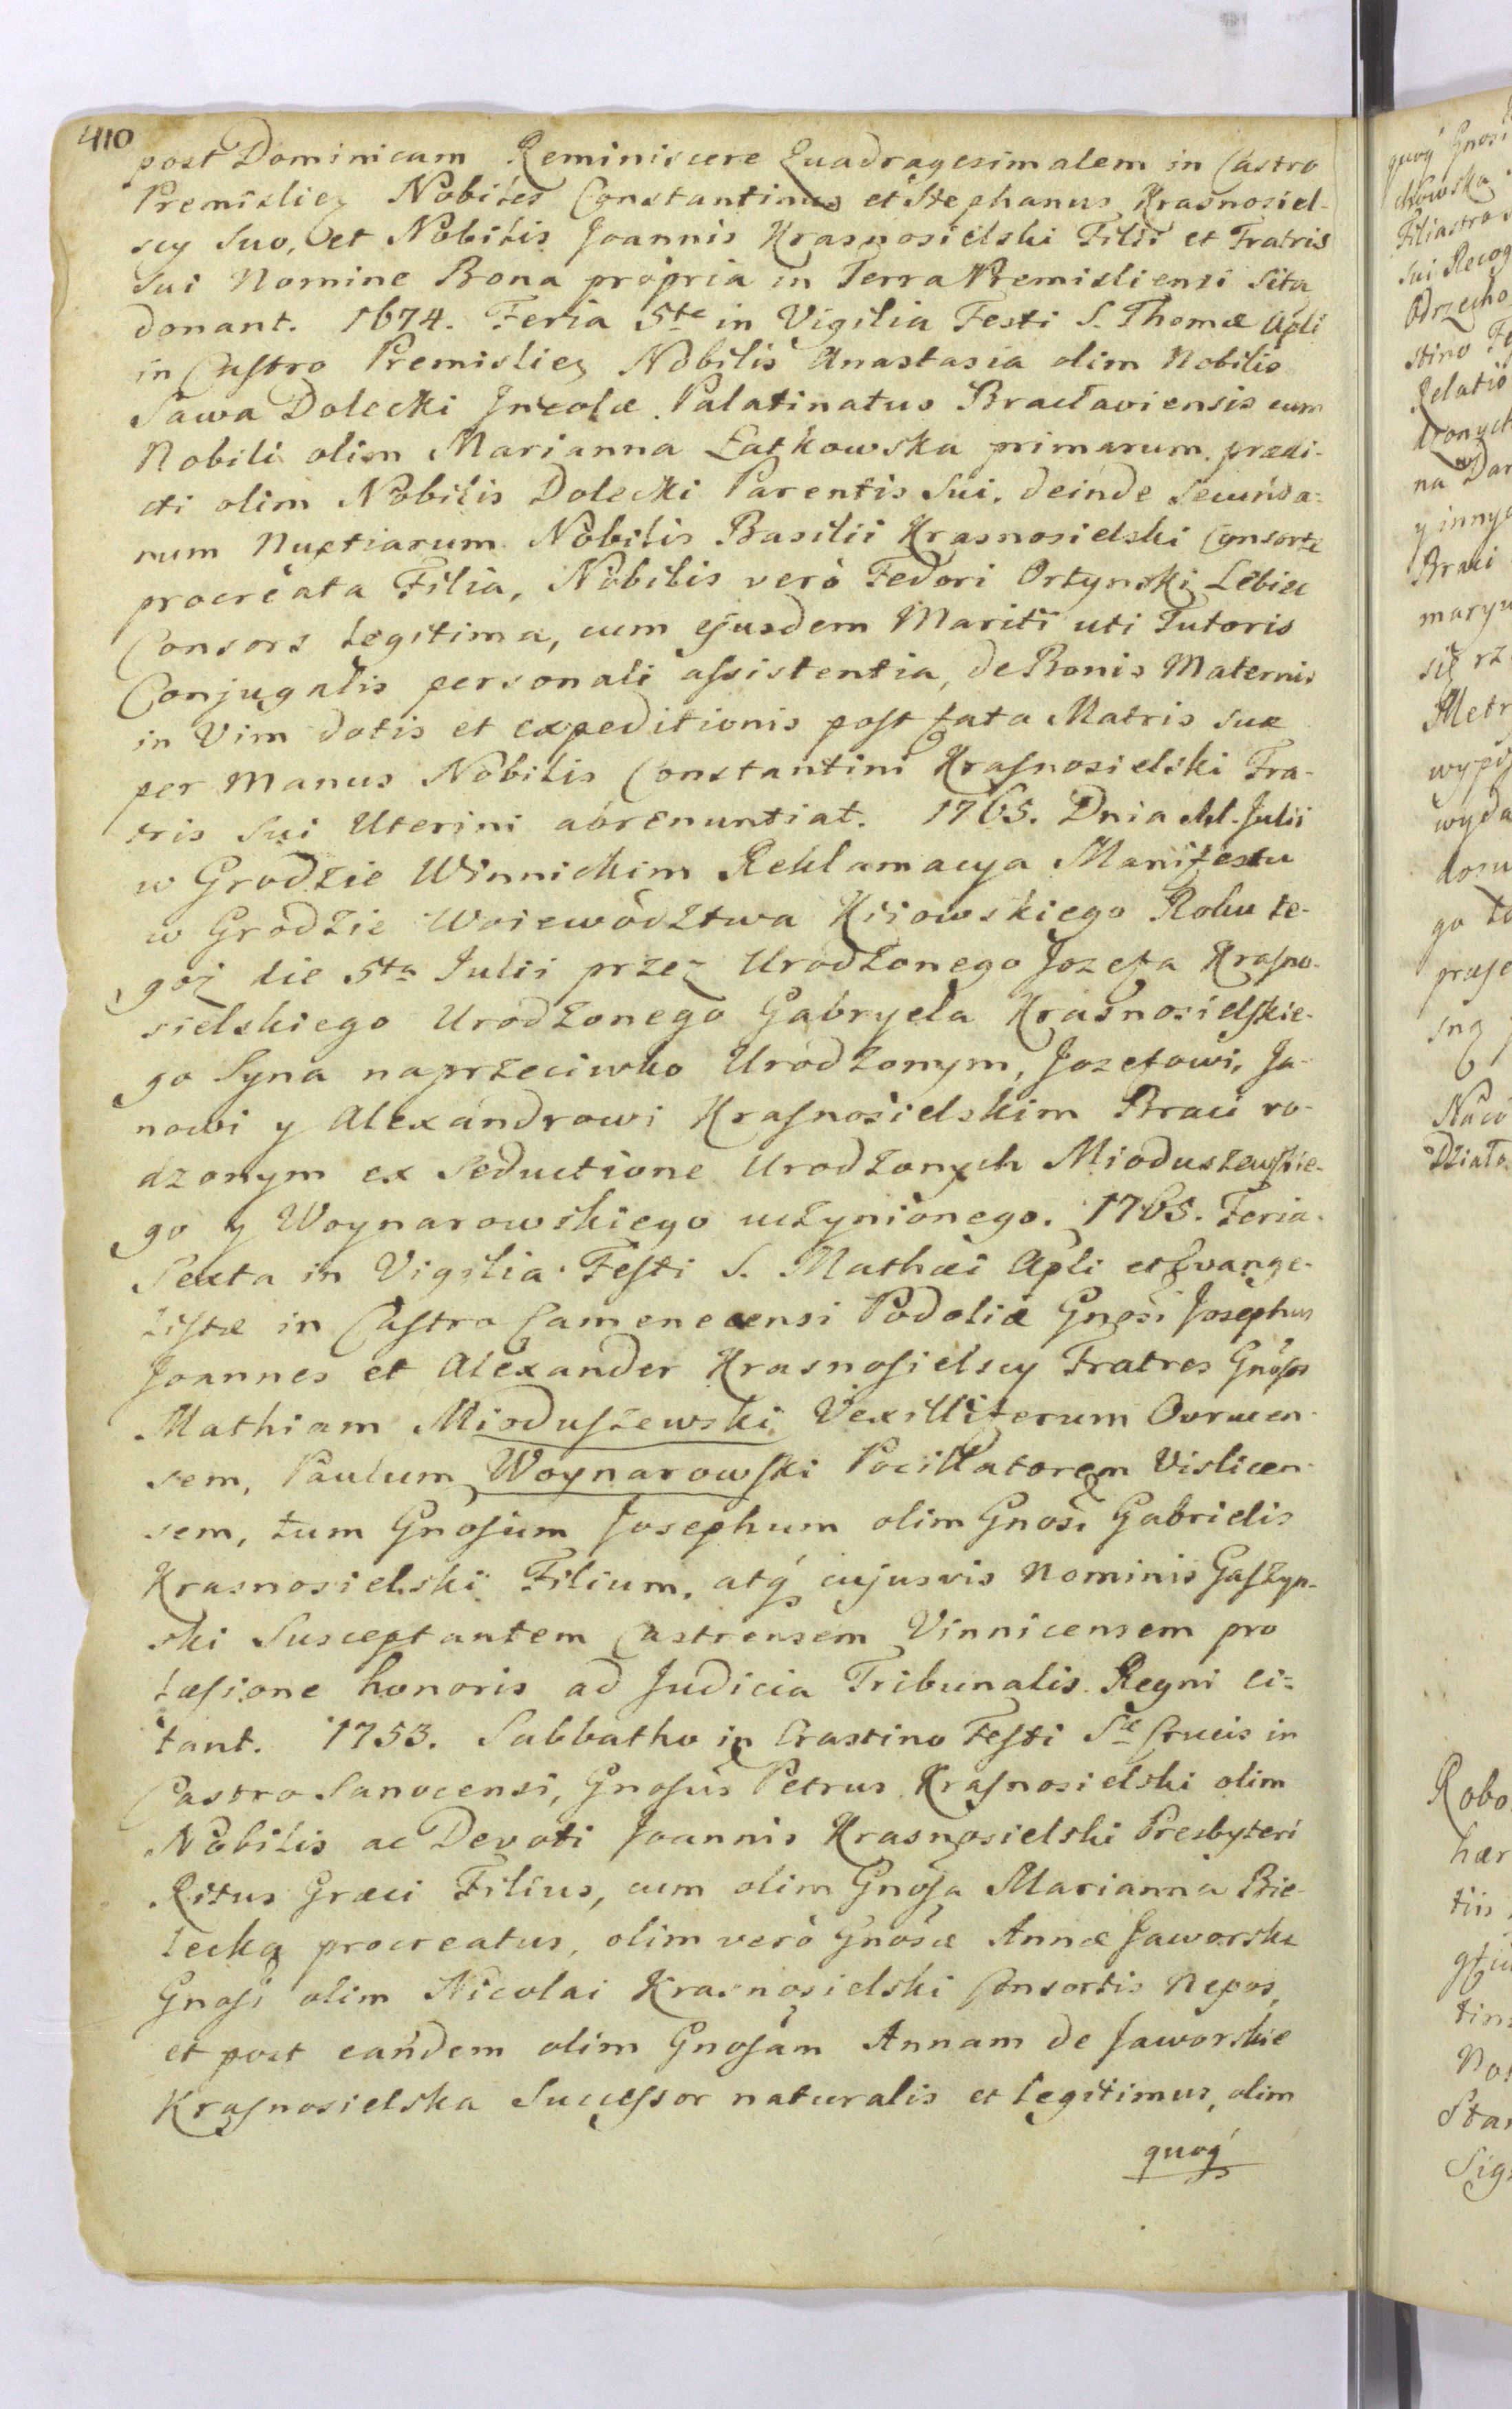 410
post Dominicam Reminiscere Quadragesimalem in Castro
Premislieg Nobiles Constantinus et Stephanus Krasnosiel-
scy suo, et Nobilis Joannis Krasnosielski Filii et Fratris
sui Nomine Bona propria in Terra Premisliensi sita
donant. 1674. Feria 5te in Vigilia Festi S. Thomæ Apli
in Castro Premislieg Nobilis Anastasia olim Nobilis
Sawa Dolecki Incolæ Palatinatus Bracłaviensis cum
Nobili olim Marianna Łatkowska primarum prædi-
cti olim Nobilis Dolecki Parentis sui, deinde secunda-
rum Nuptiarum Nobilis Basilii Krasnosielski Consorte
procreata Filia, Nobilis verò Fedori Ortynski Lebiec
Consors legitima, cum ejusdem Mariti uti Tutoris
Conjugalis personali assistentia, de Bonis Maternis
in Vim dotis et expeditionis post fata Matris suæ
per manus Nobilis Constantini Krasnosielski Fra-
tris sui Uterini abrenuntiat. 1765. Dnia Julii
w Grodzie Winnickim Reklamacya Manifestu
w Grodzie Woiewództwa Kiiowskiego Roku te-
goż die 5ta Julii przez Urodzonego Jozefa Krasno-
sielskiego Urodzonego Gabryela Krasnosielskie-
go Syna naprzeciwko Urodzonym, Jozefowi, Ja-
nowi y Alexandrowi Krasnosielskim Braci ro-
dzonym ex seductione Urodzonych Mioduszewskie-
go y Woynarowskiego uczynionego. 1765. Feria
Sexta in Vigilia Festi S. Mathæi Apli et Evange-
listæ in Castro Camenecensi Podoliæ Gnosi Josephus
Joannes et Alexander Krasnosielscy Fratres Gnosos
Mathiam Mioduszewski Vexilliferum Owrucen-
sem, Paulum Woynarowski Pocillatorem Vislicen-
sem, tum Gnosum Josephum olim Gnosi Gabrielis
Krasnosielski Filium, atq́ cujusvis Nominis Gaszyn-
ski Susceptantem Castrensem Vinnicensem pro
læsione honoris ad Judicia Tribunalis Regni ci-
tant. 1753. Sabbatho in Crastino Festi Sæ Crucis in
Castro Sanocensi, Gnosus Petrus Krasnosielski olim
Nobilis ac Devoti Joannis Krasnosielski Presbyteri
Ritus Græci Filius, cum olim Gnosa Marianna Bie-
lecka procreatus, olim verò Gnosæ Annæ Jaworska
Gnosi olim Nicolai Krasnosielski Consortis Nepos,
et post eandem olim Gnosam Annam de Jaworskie
Krasnosielska Successor naturalis et legitimus, olim
quoq́
quoq́ Gnosi
chowska
Filiastros
sui Recog
Odrzecho
stino Fe
Relatio
na Dar
y innyc
Braci
się rz
Metr
wypis
wyda
go to
Działo
Robo
hær
tiis
Sta
Sig